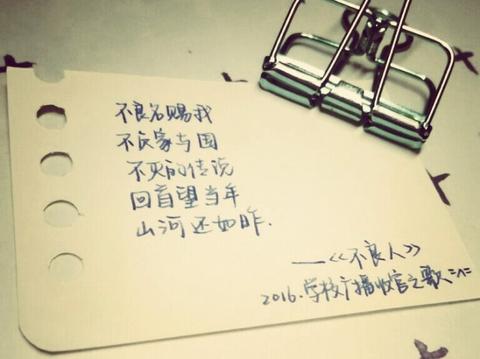 不良名赐我
不良家与国
不灭的传说
回首望当年
山河还如昨.
——<<不良人>>
2016.学校广播收官之歌=^=